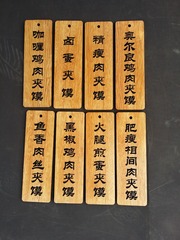 咖喱鸡肉夹馍
卤蛋夹馍
精瘦肉夹馍
奥尔良鸡肉夹馍
鱼香肉丝夹馍
黑椒鸡肉夹馍
火腿煎蛋夹馍
肥瘦相间肉夹馍